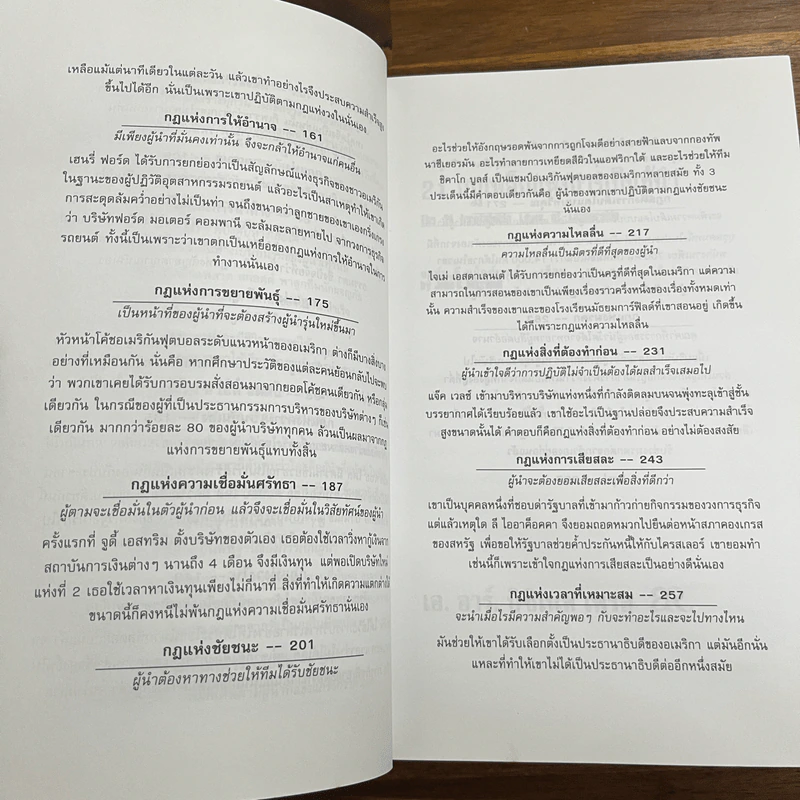 เหลือแม้แต่นาทีเดียวในแต่ละวัน แล้วเขาทำอย่างไรจึงประสบความสำเร็จสูง
ขึ้นไปได้อีก นั่นเป็นเพราะเขาปฏิบัติตามกฎแห่งวงในนั่นเอง
กฎแห่งการให้อำนาจ -- 161
มีเพียงผู้นำที่มั่นคงเท่านั้น จึงจะกล้าให้อำนาจแก่คนอื่น
เฮนรี่ ฟอร์ด ได้รับการยกย่องว่าเป็นสัญลักษณ์แห่งธุรกิจของชาวอเมริกัน
ในฐานะของผู้ปฏิวัติอุตสาหกรรมรถยนต์ แล้วอะไรเป็นสาเหตุทำให้เขาเกิด
การสะดุดล้มคว่ำอย่างไม่เป็นท่า จนถึงขนาดว่าลูกชายของเขาเองกริ่งเกรง
ว่า บริษัทฟอร์ด มอเตอร์ คอมพานี จะล้มละลายหายไป จากวงการธุรกิจ
รถยนต์ ทั้งนี้เป็นเพราะว่าเขาตกเป็นเหยื่อของกฎแห่งการให้อำนาจในการ
ทำงานนั่นเอง
กฎแห่งการขยายพันธุ์ -- 175
เป็นหน้าที่ของผู้นำที่จะต้องสร้างผู้นำรุ่นใหม่ขึ้นมา
หัวหน้าโค้ชอเมริกันฟุตบอลระดับแนวหน้าของอเมริกา ต่างก็มีบางสิ่งบาง
อย่างที่เหมือนกัน นั่นคือ หากศึกษาประวัติของแต่ละคนย้อนกลับไปจะพบ
ว่า พวกเขาเคยได้รับการอบรมสั่งสอนมาจากยอดโค้ชคนเดียวกัน หรือกลุ่ม
เดียวกัน ในกรณีของผู้ที่เป็นประธานกรรมการบริหารของบริษัทต่างๆ ก็เช่น
เดียวกัน มากกว่าร้อยละ 80 ของผู้นำบริษัททุกคน ล้วนเป็นผลมาจากกฎ
แห่งการขยายพันธุ์แทบทั้งสิ้น
กฎแห่งความเชื่อมั่นศรัทธา -- 187
ผู้ตามจะเชื่อมั่นในตัวผู้นำก่อน แล้วจึงจะเชื่อมั่นในวิสัยทัศน์ของผู้นำ
ครั้งแรกที่ จูดี้ เอสทริม ตั้งบริษัทของตัวเอง เธอต้องใช้เวลาวิ่งหากู้เงินจาก
สถาบันการเงินต่างๆ นานถึง 4 เดือน จึงมีเงินทุน แต่พอเปิดบริษัทใหม่
แห่งที่ 2 เธอใช้เวลาหาเงินทุนเพียงไม่กี่นาที สิ่งที่ทำให้เกิดความแตกต่างได้
ขนาดนี้ก็คงหนีไม่พ้นกฎแห่งความเชื่อมั่นศรัทธานั่นเอง
กฎแห่งชัยชนะ -- 201
ผู้นำต้องหาทางช่วยให้ทีมได้รับชัยชนะ
อะไรช่วยให้อังกฤษรอดพ้นจากการถูกโจมตีอย่างสายฟ้าแลบจากกองทัพ
นาซีเยอรมัน อะไรทำลายการเหยียดสีผิวในแอฟริกาใต้ และอะไรช่วยให้ทีม
ชิคาโก บูลส์ เป็นแชมป์อเมริกันฟุตบอลของอเมริกาหลายสมัย ทั้ง 3
ประเด็นนี้มีคำตอบเดียวกันคือ ผู้นำของพวกเขาปฏิบัติตามกฎแห่งชัยชนะ
นั่นเอง
กฎแห่งความไหลลื่น -- 217
ความไหลลื่นเป็นมิตรที่ดีที่สุดของผู้นำ
ใจเม่ เอสดาเลนเต้ ได้รับการยกย่องว่าเป็นครูที่ดีที่สุดในอเมริกา แต่ความ
สามารถในการสอนของเขาเป็นเพียงเรื่องราวครึ่งหนึ่งของเรื่องทั้งหมดเท่า
นั้น ความสำเร็จของเขาและของโรงเรียนมัธยมการ์ฟิลด์ที่เขาสอนอยู่ เกิดขึ้น
ได้ก็เพราะกฎแห่งความไหลลื่น
กฎแห่งสิ่งที่ต้องทำก่อน -- 231
ผู้นำเข้าใจดีว่าการปฏิบัติไม่จำเป็นต้องได้ผลสำเร็จเสมอไป
แจ๊ค เวลซ์ เข้ามาบริหารบริษัทแห่งหนึ่งที่กำลังติดลมบนจนพุ่งทะลุเข้าสู่ชั้น
บรรยากาศได้เรียบร้อยแล้ว เขาใช้อะไรเป็นฐานปล่อยจึงประสบความสำเร็จ
สูงขนาดนั้นได้ คำตอบก็คือกฎแห่งสิ่งที่ต้องทำก่อน อย่างไม่ต้องสงสัย
กฎแห่งการเสียสละ -- 243
ผู้นำจะต้องยอมเสียสละเพื่อสิ่งที่ดีกว่า
เขาเป็นบุคคลหนึ่งที่ชอบด่ารัฐบาลที่เข้ามาก้าวก่ายกิจกรรมของวงการธุรกิจ
แต่แล้วเหตุใด ลี ไออาค็อคคา จึงยอมถอดหมวกไปยืนต่อหน้าสภาคองเกรส
ของสหรัฐ เพื่อขอให้รัฐบาลช่วยค้ำประกันหนี้ให้กับไครสเลอร์ เขายอมทำ
เช่นนี้ก็เพราะเข้าใจกฎแห่งการเสียสละเป็นอย่างดีนั่นเอง
กฎแห่งเวลาที่เหมาะสม -- 257
จะนำเมื่อไรมีความสำคัญพอๆ กับจะทำอะไรและจะไปทางไหน
มันช่วยให้เขาได้รับเลือกตั้งเป็นประธานาธิบดีของอเมริกา แต่มันอีกนั่น
แหละที่ทำให้เขาไม่ได้เป็นประธานาธิบดีต่ออีกหนึ่งสมัย